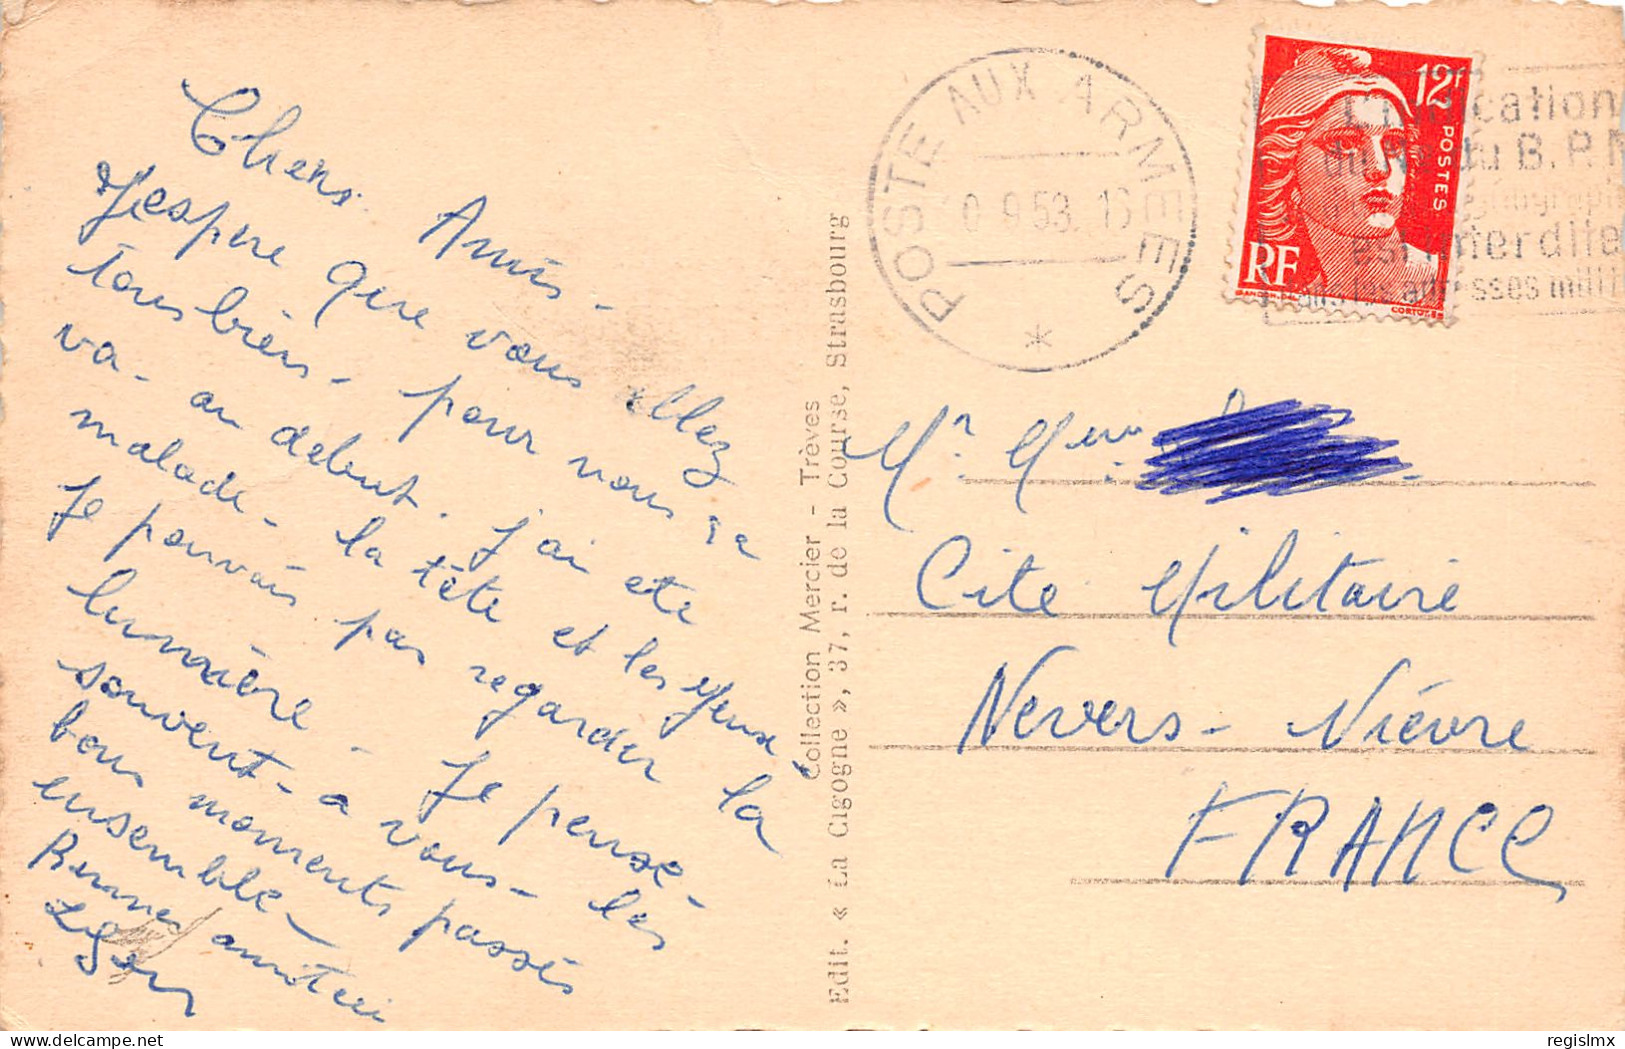 Chers Amis -
J'espere que vous allez
tous bien - pour nous ça
va - au debut. j'ai ete
malade - la tête et les yeux
Je pouvais pas regarder la
lumière - Je pense
souvent - a vous - les
bons moments passés
ensemble -
POSTE AUX ARMEES
0 - 9 53. 16
*
12F
POSTES
RF
GANDON
CORTOT
L'indication
du No du B.P.M
est interdite
dans les adresses milit
Collection Mercier - Trèves
Edit. « La Cigogne », 37, r. de la Course, Strasbourg
Mr. Mme
Cite Militaire
Nevers - Nièvre
FRANCE
delcampe.net
regislmx